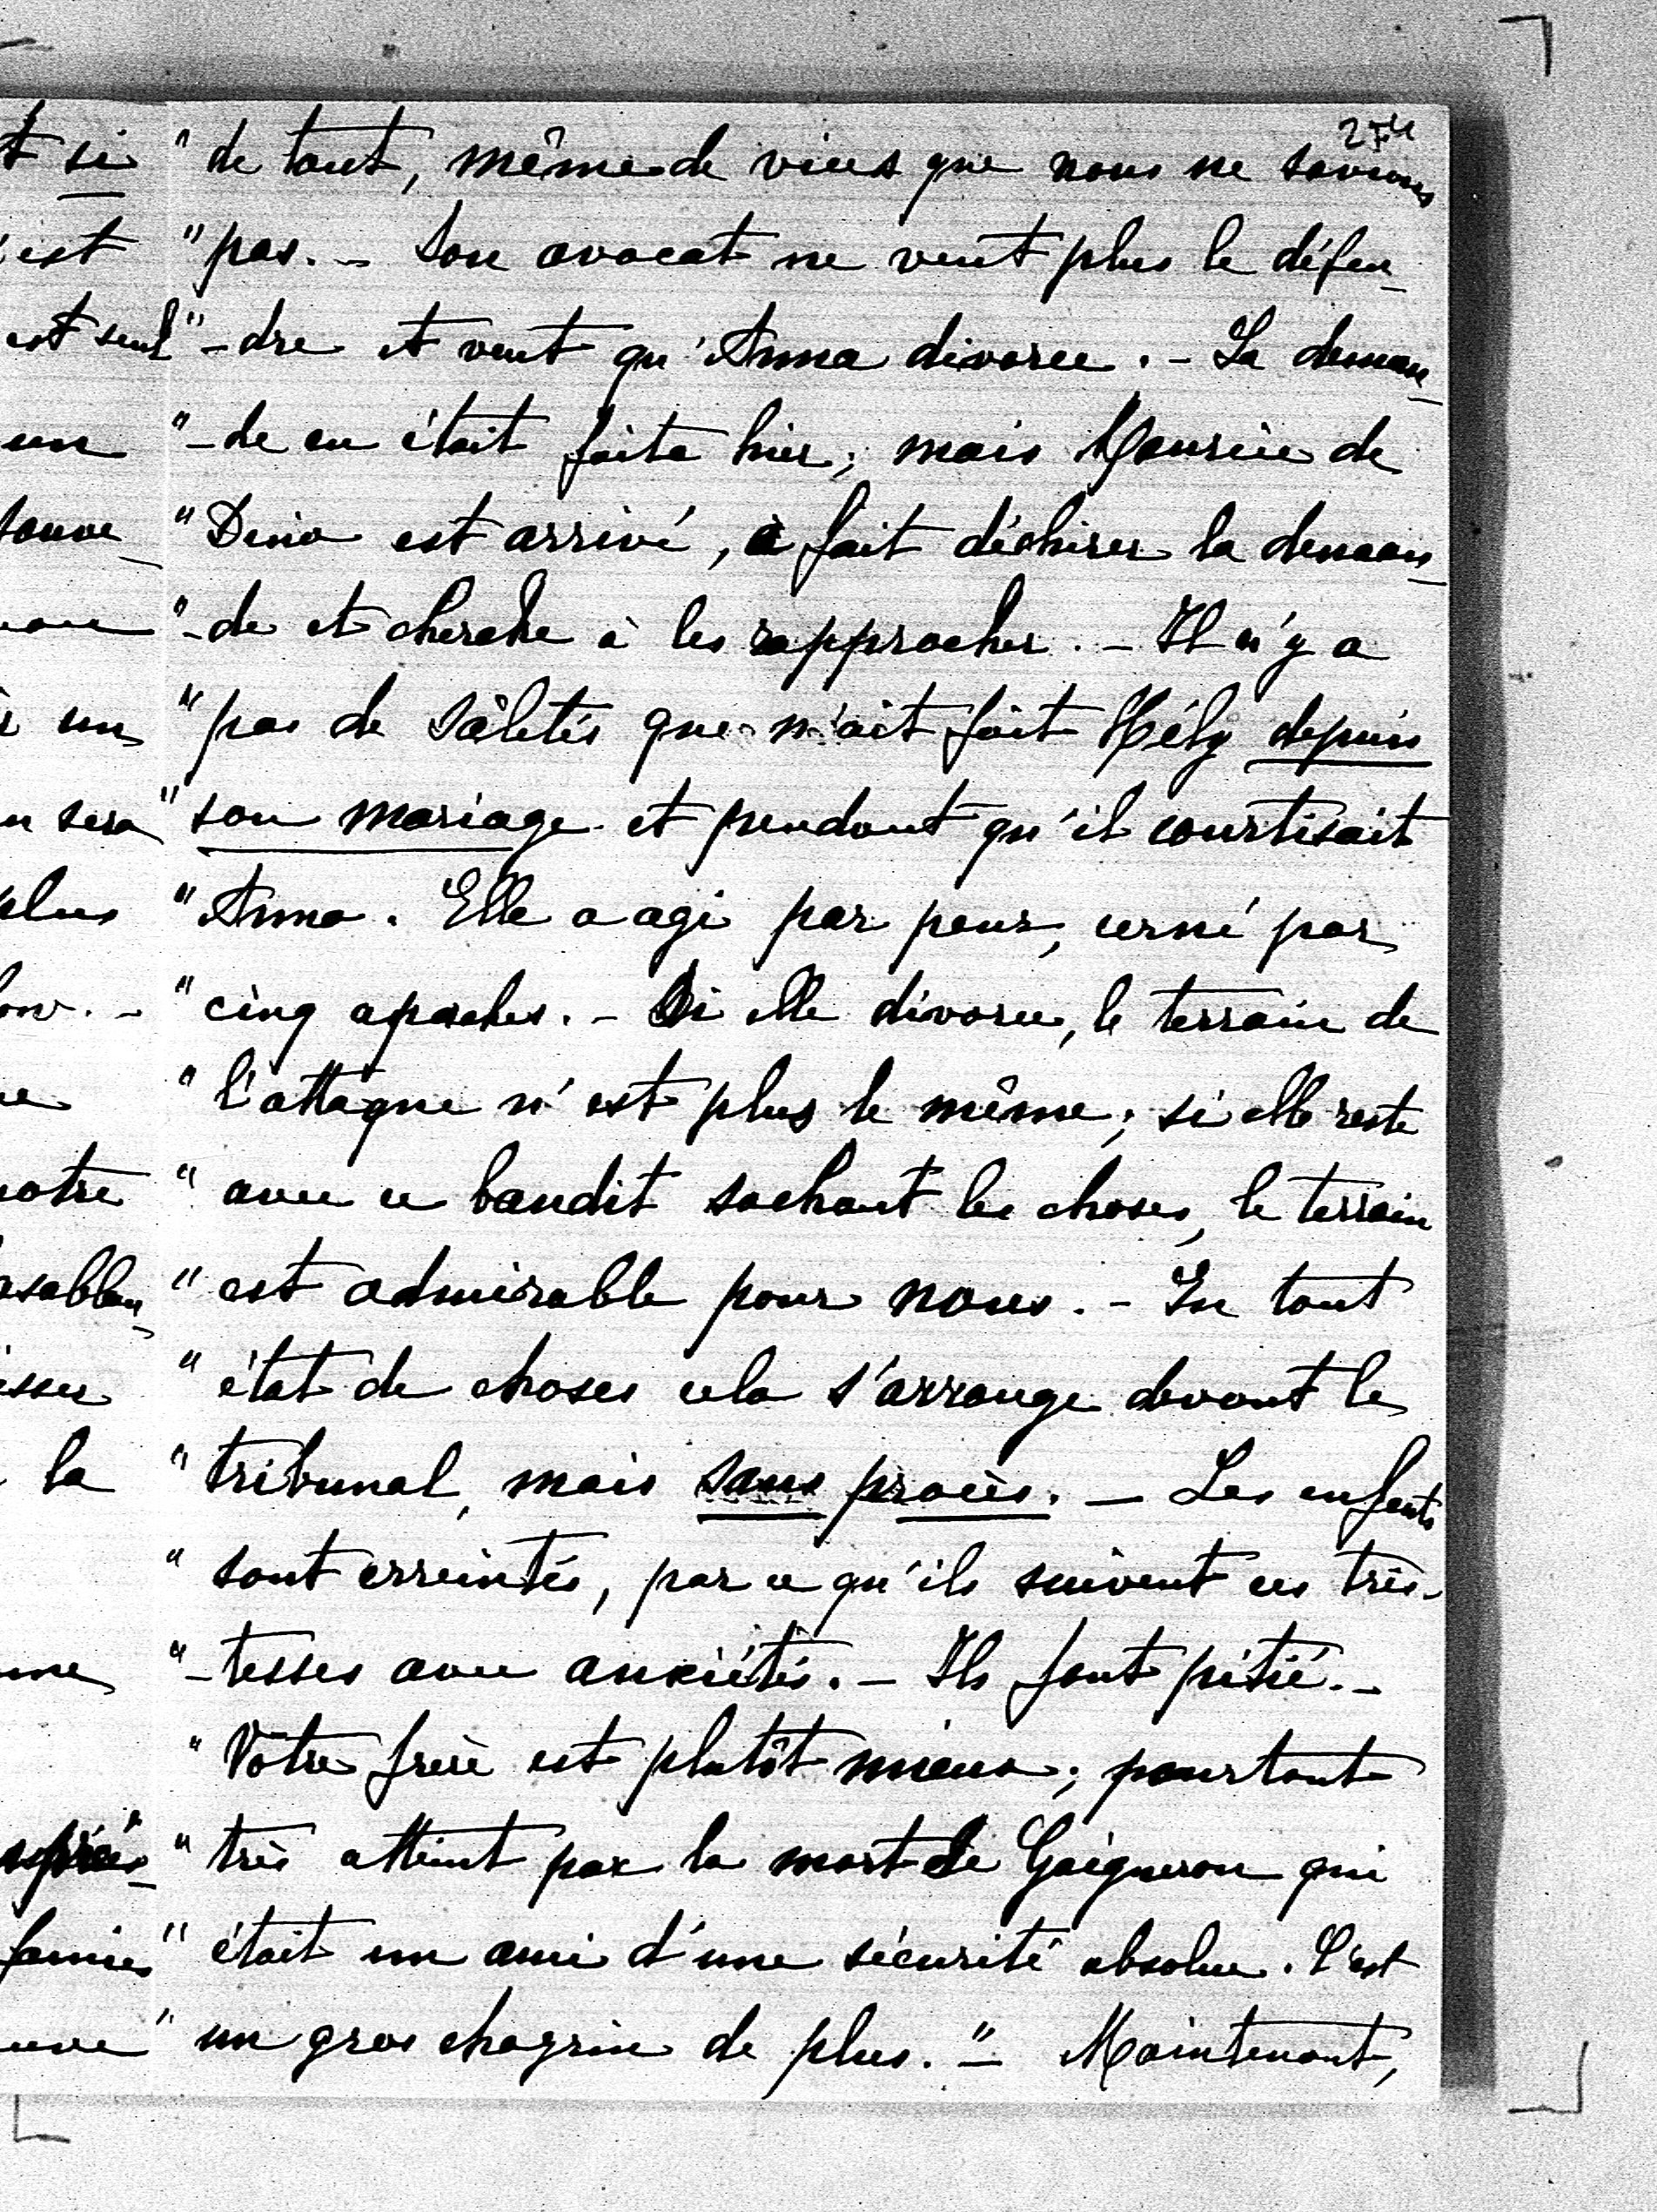 274
t si "de tout, même de vices que nous ne savions
est "pas. - Son avocat ne veut plus le défen-
est seul "-dre et veut qu'Anna divorce. - La deman-
un "-de en était faite hier; mais Maurice de
"Dino est arrivé, a fait déchirer la deman-
"-de et cherche à les rapprocher. - Il n'y a
un "pas de sâletés que n'ait fait Hély depuis
sera "son mariage et pendant qu'il courtisait
plus "Anna. Elle a agi par peur, cerné par
"cinq apaches. - Si elle divorce, le terrain de
"l'attaque n'est plus le même; si elle reste
notre "avec ce bandit sachant les choses, le terrain
"est admirable pour nous. - En tout
"état de choses cela s'arrange devant le
la "tribunal, mais sans procès. - Les enfants
"sont erreintés, par ce qu'ils suivent ces tris-
"-tesses avec anxiétés. - Ils font pitié. -
"Vôtre frère est plutôt mieux; pourtant
"très atteint par la mort de Gaigneron qui
"était un ami d'une sécurité absolue. C'est
"un gros chagrin de plus." - Maintenant,